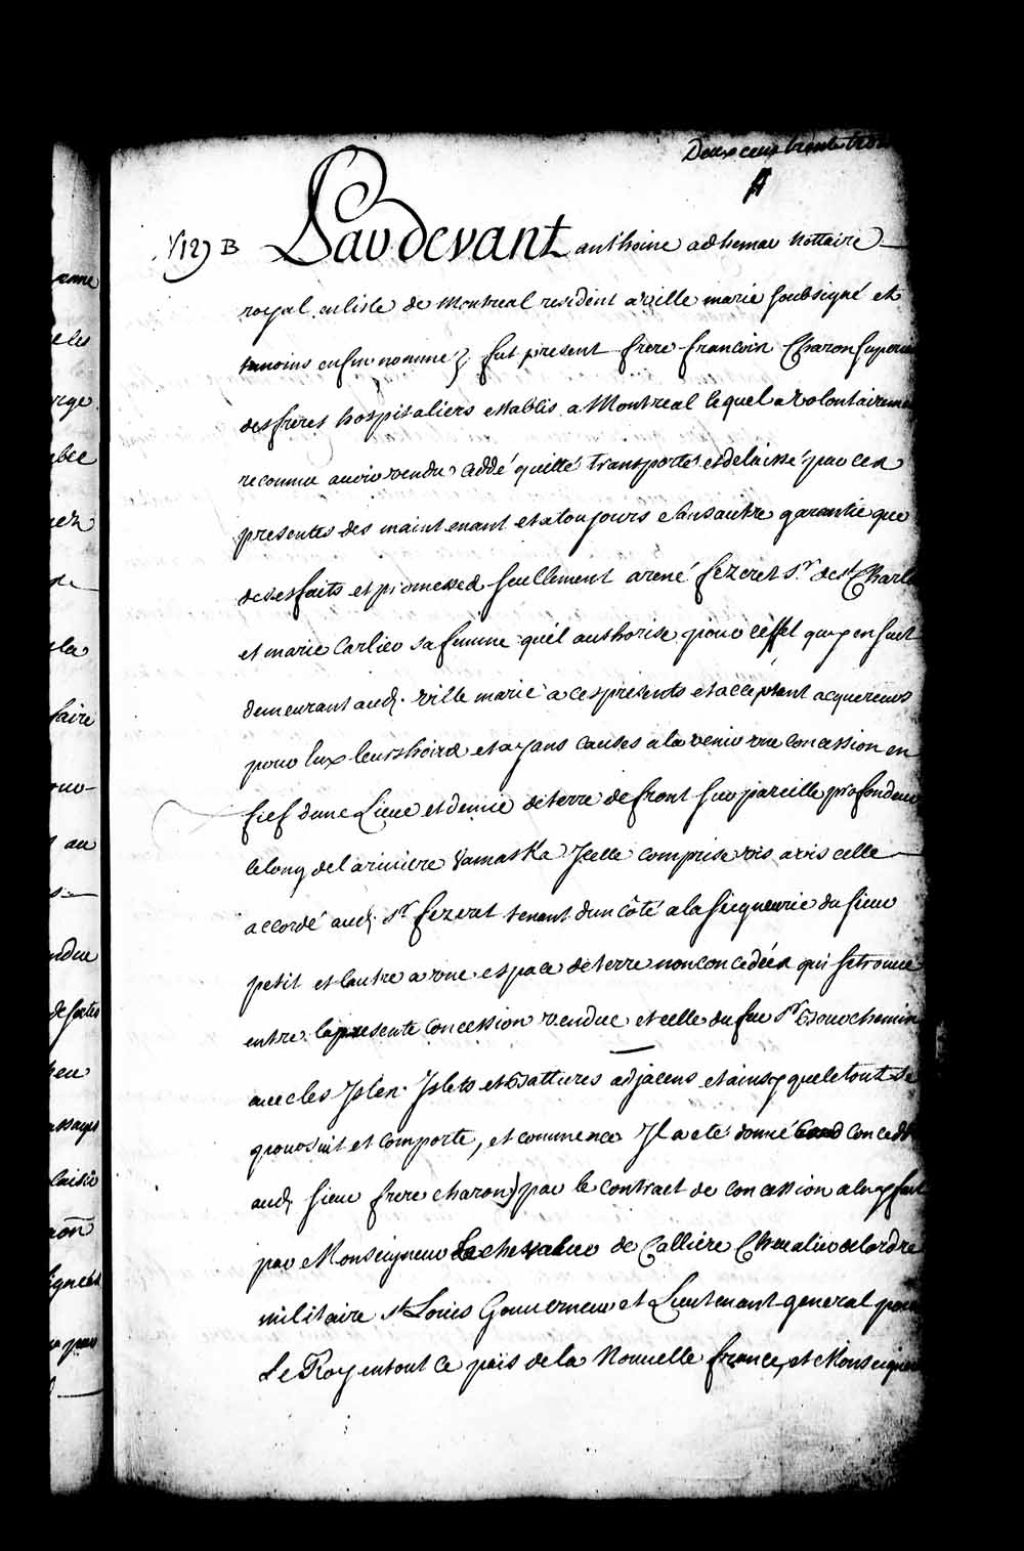 Deux cens trente trois
V12) B Pardevant anthoine adhemar nottaire
royal en lisle de Montreal resident a ville marie soubsigné et
temoins enfin nommez fut present frere francois Charon superieu
des freres hospitaliers establis a Montreal lequel a volontairemen
reconnu avoir vendu ceddé quitté transporté et delaissé par ces
presentes des maintenant et a toujours sans autre garantie que
de ses faits et promesses seullement a rené fezeret Sr. de st. Charle
et marie Carlier sa femme quel authorise pour leffet quy en suit
demeurant aud. ville marie a ces presents et acceptant acquereurs
pour Eux leurs hoirs et ayans causes a lavenir une concession en
fief dune Lieue et demie de terre de front sur pareille profondeur
le long de la riviere yamaska Icelle comprise vis a vis celle
accordé aud. Sr. fezeret tenant dun côté a la seigneurie du sieur
petit et lautre a une espace de terre non concedéea qui se trouve
entre la presente concession vendue et celle du feu Sr. Bourchemin
avec les Isles. Islets et Battures adjacens et ainsy que le tout se
poursuit et comporte, et comme Il a eté donné concedé
aud. sieur frere charon par le contract de concession a luy fait
par Monseigneur Le chevalier de Calliere Chevalier de lordre
militaire st Louis Gouverneur et Lieutenant general pour
Le Roy en tout Ce païs de la Nouvelle france, et Monseigneur